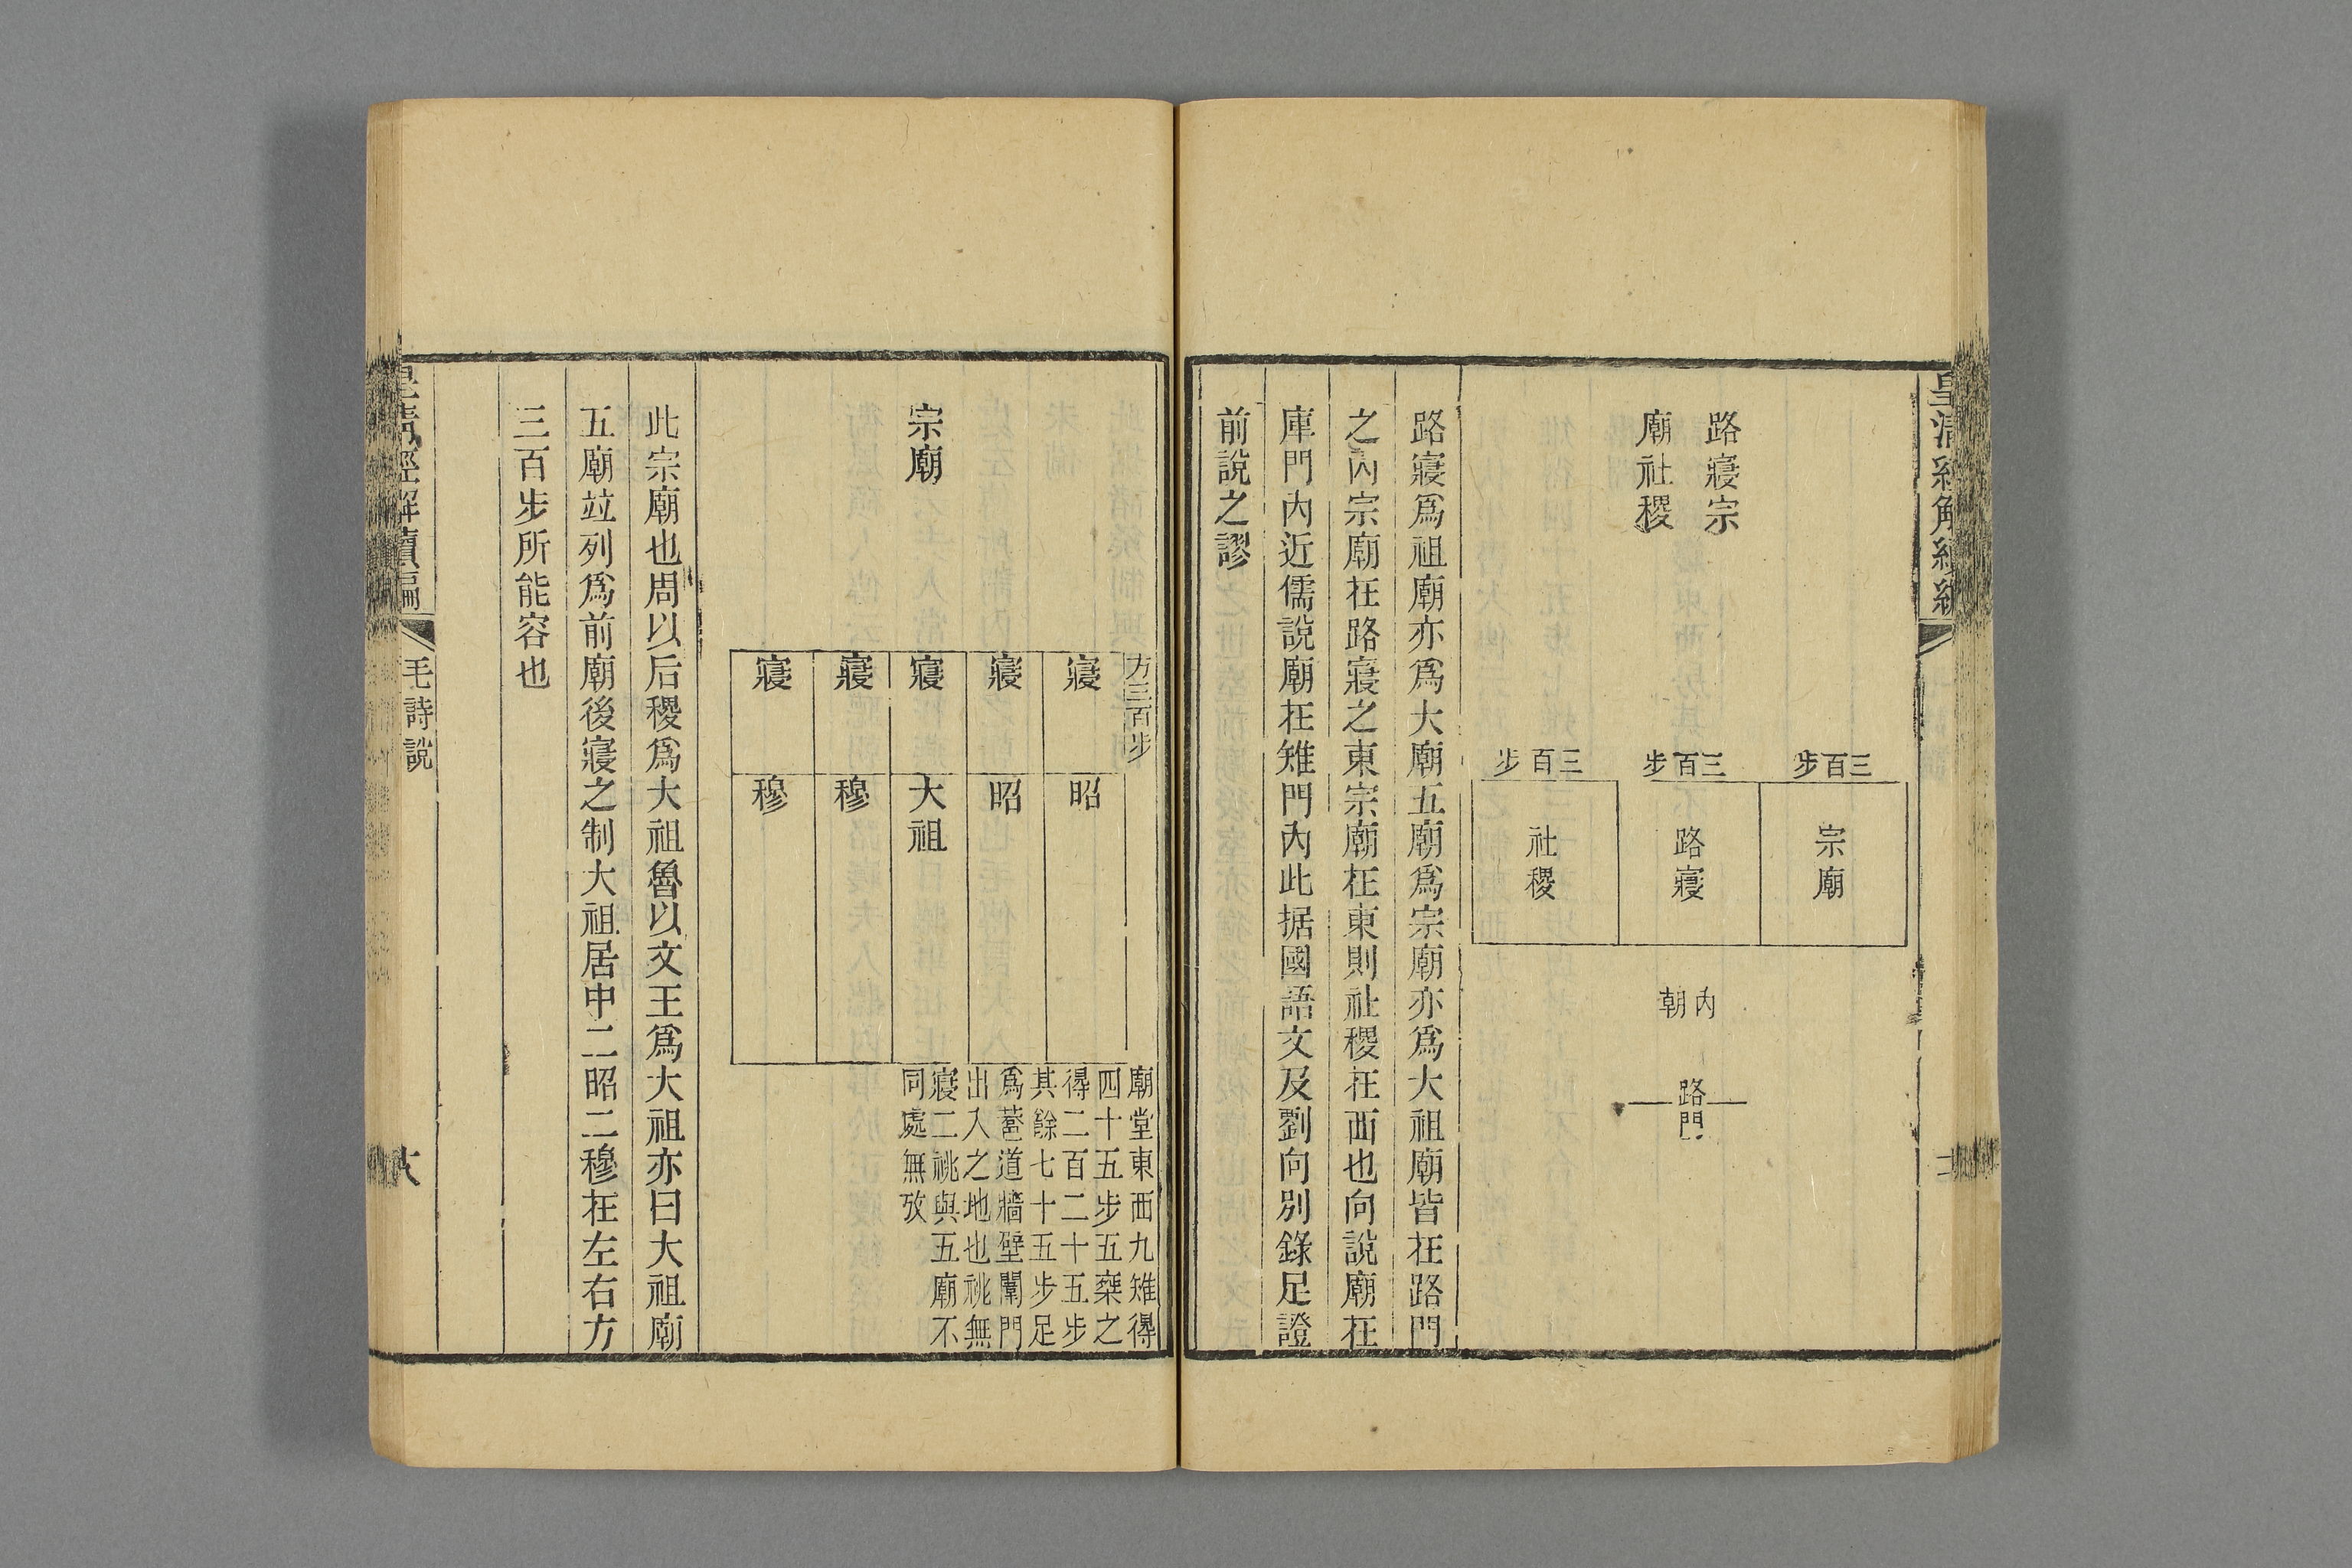 皇清經解續編
路寢宗
廟社稷
三百步
三百步
三百步
宗廟
路寢
社稷
內朝
路門
路寢爲祖廟亦爲大廟五廟爲宗廟亦爲大祖廟皆在路門
之內宗廟在路寢之東宗廟在東則社稷在西也向說廟在
庫門內近儒說廟在雉門內此据國語文及劉向別錄足證
前說之謬
宗廟
方三百步
寢
寢
寢
寢
寢
昭
昭
大祖
穆
穆
廟堂東西九雉得
四十五步五椉之
得二百二十五步
其餘七十五步足
爲巷道牆壁闈門
出入之地也祧無
寢二祧與五廟不
同處無攷
此宗廟也周以后稷爲大祖魯以文王爲大祖亦曰大祖廟
五廟竝列爲前廟後寢之制大祖居中二昭二穆在左右方
三百步所能容也
皇清經解續編
毛詩說